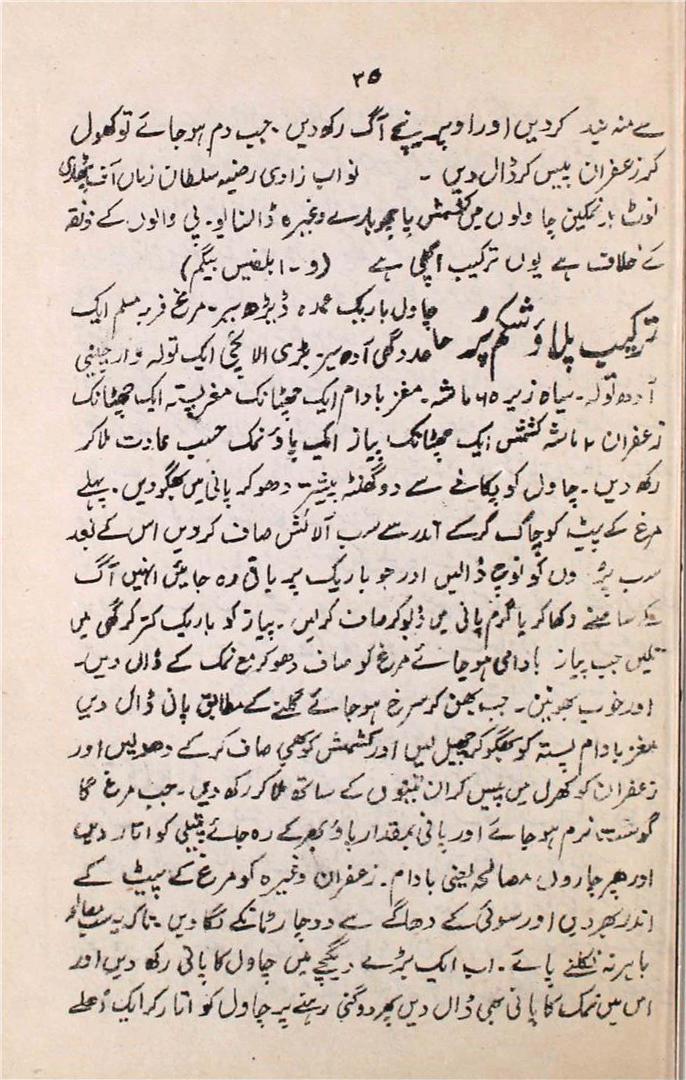 ۳۵
سے منہ بند کردیں اور اوپر نیچے آگ رکھ دیں۔ جب دم ہو جائے تو کھول
کر زعفران پیس کر ڈال دیں ۔ نواب زادی رضیہ سلطان زماں آف
نوٹ :۔ نمکین چاولوں میں کشمش یا چھوہارے وغیرہ ڈالنا یو۔ پی والوں کے ذوق
کے خلاف ہے یوں ترکیب اچھی ہے (و۔ ا بلقیس بیگم)
ترکیب پلاؤ شکم پُر چاول باریک عمدہ ڈیڑھ سیر۔ مرغ فربہ مسلم ایک
عدد گھی آدھ سیر بڑی الائچی ایک تولہ دارچینی
آدھ تولہ۔ سیاہ زیرہ ۶ ماشہ۔ مغز بادام ایک چھٹانک مغز پستہ ایک چھٹانک
زعفران ۲ ماشہ کشمش ایک چھٹانک پیاز ایک پاؤ نمک حسب عادت ملا کر
رکھ دیں۔ چاول کو پکانے سے دو گھنٹہ پیشتر دھو کر پانی میں بھگو دیں۔ پہلے
مرغ کے پیٹ کو چاک کر کے اندر سے سب آلائش صاف کر دیں اس کے بعد
سب پروں کو نوچ ڈالیں اور جو باریک پر باقی رہ جائیں انہیں آگ
کے سامنے دکھا کر یا گرم پانی میں ڈبو کر صاف کر لیں۔ پیاز کو باریک کتر کر گھی میں
تلیں جب پیاز بادامی ہو جائے مرغ کو صاف دھو کر مع نمک کے ڈال دیں۔
اور خوب بھونیں۔ جب بھن کر سرخ ہو جائے گلنے کے مطابق پانی ڈال دیں
مغز بادام پستہ کو بھگو کر چھیل لیں اور کشمش کو بھی صاف کر کے دھو لیں اور
زعفران کو کھرل میں پیس کر ان تینوں کے ساتھ ملا کر رکھ دیں۔ جب مرغ کا
گوشت نرم ہو جائے اور پانی بمقدار پاؤ بھر کے رہ جائے پتیلی کو اتار دیں
اور پھر چاروں مصالحہ یعنی بادام۔ زعفران وغیرہ کو مرغ کے پیٹ کے
اندر بھر دیں اور سوئی کے دھاگے سے دو چار ٹانکے لگا دیں۔ تاکہ یہ سب مصالحہ
باہر نہ نکلنے پائے۔ اب ایک بڑے دیگچے میں چاول کا پانی رکھ دیں اور
اس میں نمک کا پانی بھی ڈال دیں پھر دو گنی رہنے پر چاول کو اتار کر ایک